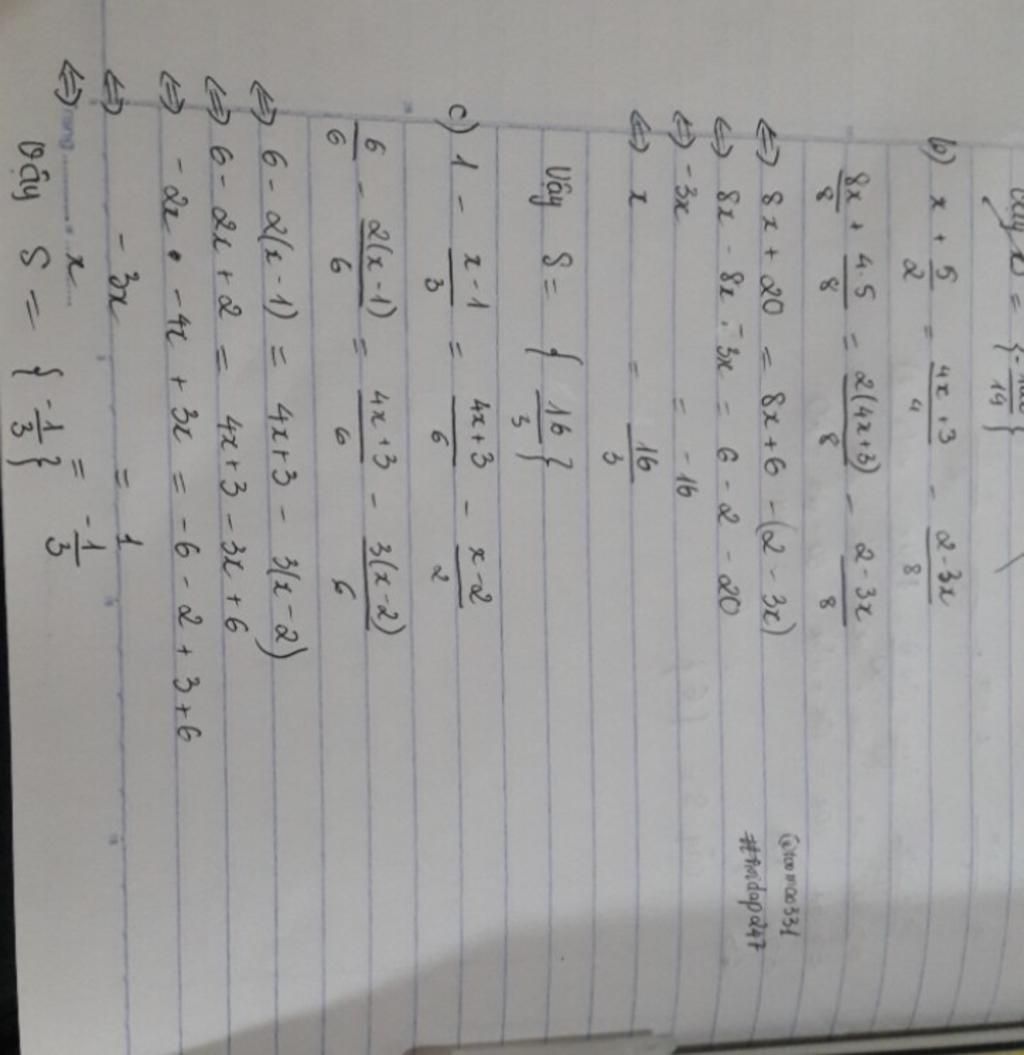 Vậy = {- / 19}
b) x + 5/2 = 4x+3/4 - 2-3x/8
8x/8 + 4.5/8 = 2(4x+3)/8 - 2-3x/8
⇔ 8x + 20 = 8x+6 - (2 - 3x)
⇔ 8x - 8x - 3x = 6 - 2 - 20
⇔ -3x = -16
⇔ x = 16/3
Vậy S = {16/3}
c) 1 - x-1/3 = 4x+3/6 - x-2/2
6/6 - 2(x-1)/6 = 4x+3/6 - 3(x-2)/6
⇔ 6 - 2(x-1) = 4x+3 - 3(x-2)
⇔ 6 - 2x + 2 = 4x+3 - 3x+6
⇔ -2x - 4x + 3x = -6 - 2 + 3 + 6
⇔ -3x = 1
⇔ x = -1/3
Vậy S = {-1/3}